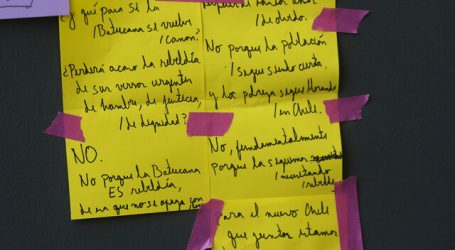 y qué pasa si la
/Batucana se vuelve
/canon?
¿Perderá acaso la rebeldía
de sus versos urgentes
de hambre, de justicia,
/de dignidad?
NO.
No porque la Batucana
ES rebeldía,
de una que no se apaga con
/de olvido.
No porque la población
/sigue siendo cierta,
y los pobres siguen llorando
/en Chile.
No, fundamentalmente
porque la seguimos
/necesitando
/rebelde
para el nuevo Chile
que juntas estamos